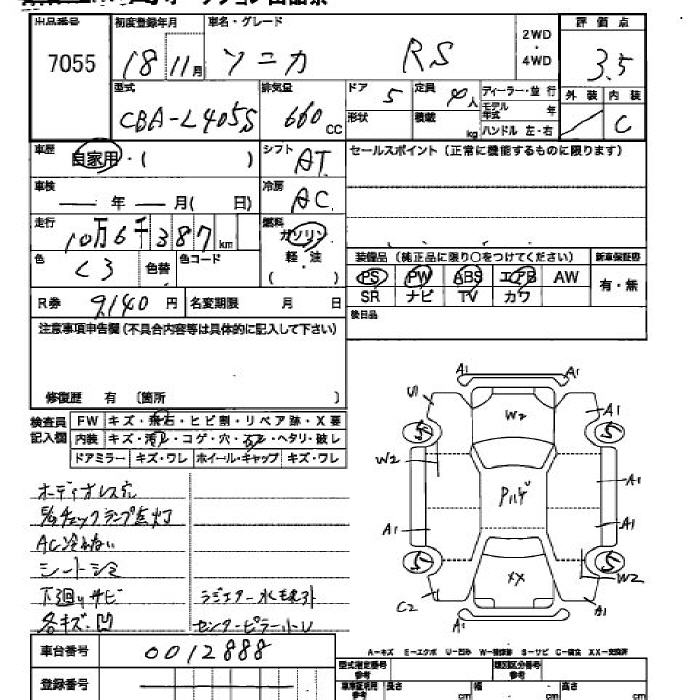 出品番号 初度登録年月 車名・グレード 2WD・4WD 評価点
7055 18 11月 ソニカ RS 3.5
型式 排気量 ドア 定員 ディーラー・並行 外装 内装
CBA-L405S 660cc 5 4人 モデル年式 年 C
形状 積載 kg ハンドル 左・右
車歴 自家用・( ) シフト AT セールスポイント (正常に機能するものに限ります)
車検 年 月( 日) 冷房 AC
走行 10万6千387km 燃料 ガソリン
軽・油
( )
色 クロ 色替 色コード
装備品 (純正品に限り○をつけてください) 新車保証書
PS PW ABS エアB AW 有・無
SR ナビ TV カワ
R券 9140円 名変期限 月 日
後日品
注意事項申告欄 (不具合内容等は具体的に記入して下さい)
修復歴 有 〔箇所 〕
検査員記入欄
FW キズ・飛石・ヒビ割・リペア跡・X要
内装 キズ・汚レ・コゲ・穴・スレ・ヘタリ・破レ
ドアミラー キズ・ワレ ホイール・キャップ キズ・ワレ
A1 A1
U1 A1
W2
5 5
W2
A1
Pハゲ
A1 A1
5 5
XX
W2
C2 A1
A1
チェックランプ点灯
AC冷えない
シートシミ
下回りサビ ラジエター水モレ
各キズ.凹 センターピラートレ
A-キズ E-エクボ U-凹み W-補修跡 S-サビ C-腐食 XX-交換済
車台番号 0012888
型式指定番号 参考 類別区分番号 参考
登録番号
車庫証明用 参考 長さ cm 幅 cm 高さ cm